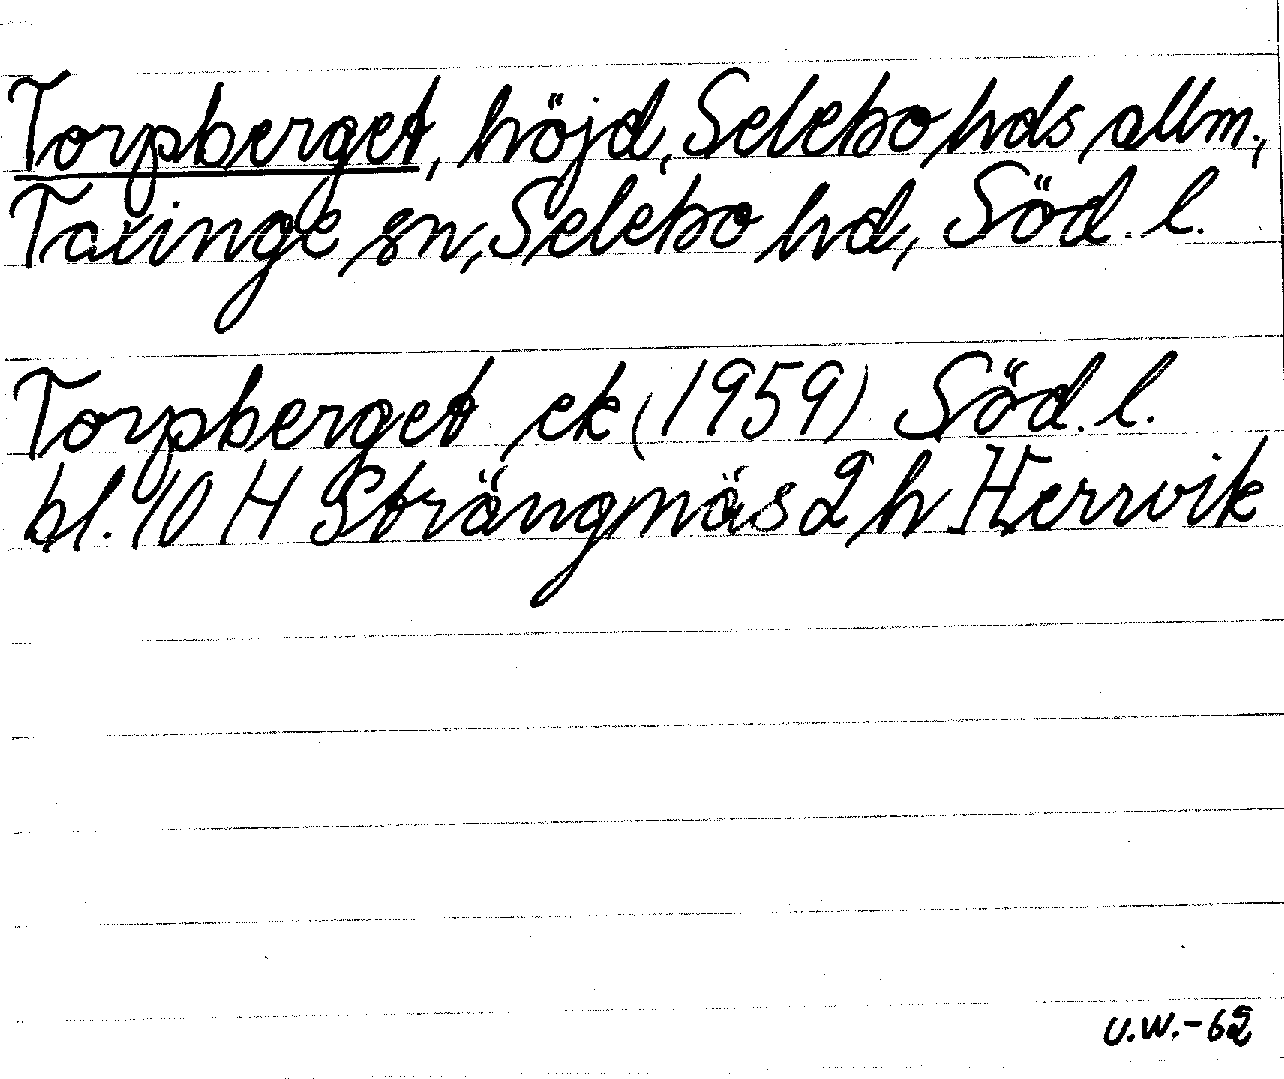 Torpberget, höjd, Selebo hds allm.,
Taxinge sn, Selebo hd, Söd. l.
Torpberget ek (1959) Söd. l.
bl. 10 H Strängnäs 2 h Herrvik
U.W.-62